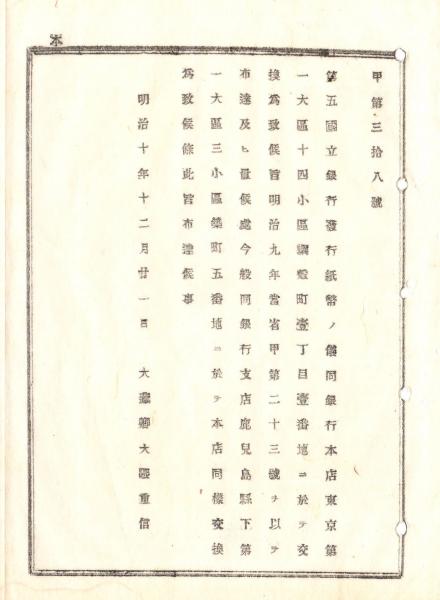 本
甲第三拾八號
第五國立銀行發行紙幣ノ儀同銀行本店東京第
一大區十四小區蠣殼町壹丁目壹番地ニ於テ交
換爲致候旨明治九年當省甲第二十三號ヲ以テ
布達及ヒ置候處今般同銀行支店鹿兒島縣下第
一大區三小區築町五番地ニ於テ本店同樣交換
爲致候條此旨布達候事
明治十年十二月廿一日 大藏卿大隈重信